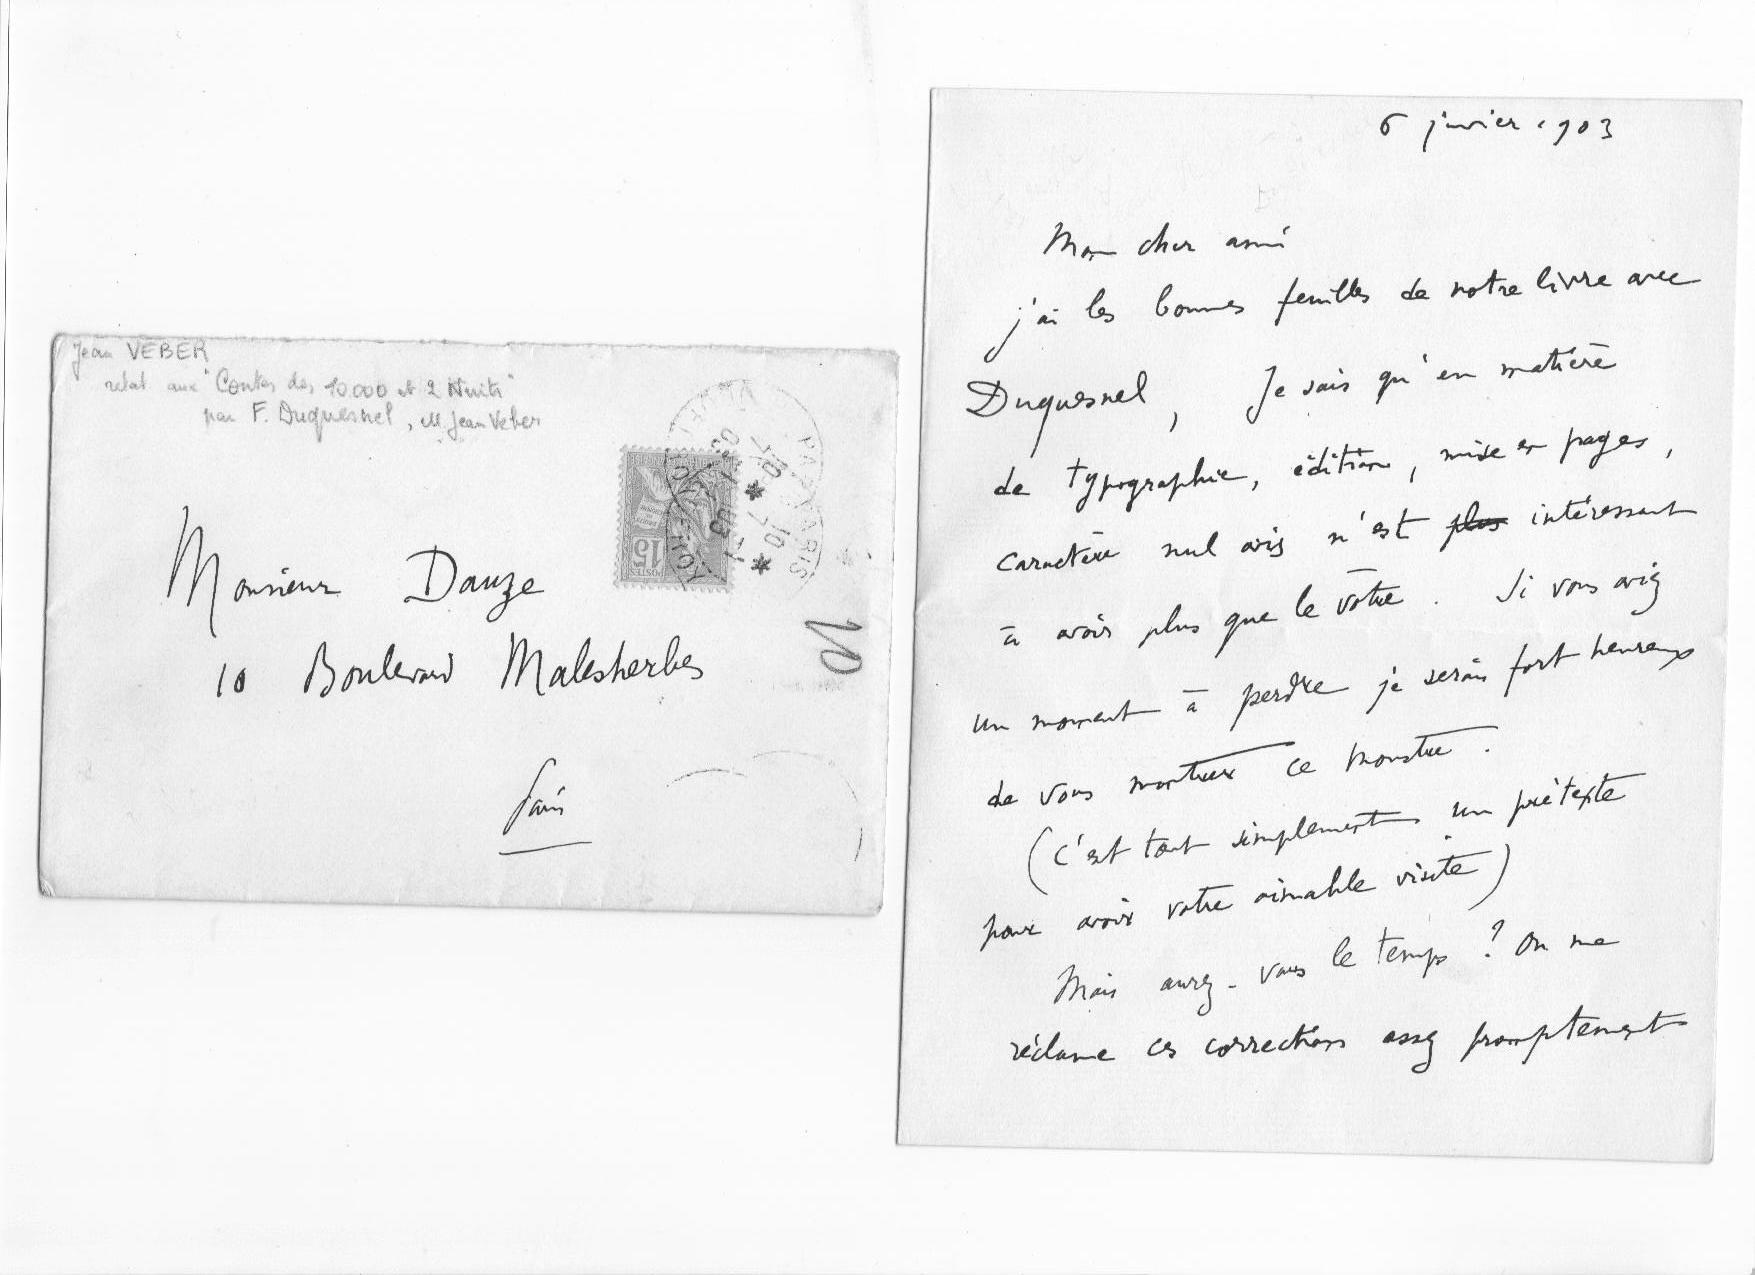 Jean VEBER
relat aux "Contes des 10.000 et 2 Nuits"
par F. Duquesnel, ill Jean Veber
15
POSTES
PARIS
Monsieur Dauze
10 Boulevard Malesherbes
Paris
6 janvier 1903
Mon cher ami
j'ai les bonnes feuilles de notre livre avec
Duquesnel, Je sais qu'en matière
de typographie, édition, mise en pages,
caractère nul avis n'est plus intéressant
à avoir plus que le vôtre. Si vous aviez
un moment à perdre je serais fort heureux
de vous montrer ce monstre.
(c'est tout simplement un prétexte
pour avoir votre aimable visite)
Mais aurez-vous le temps? On me
réclame ces corrections assez promptement